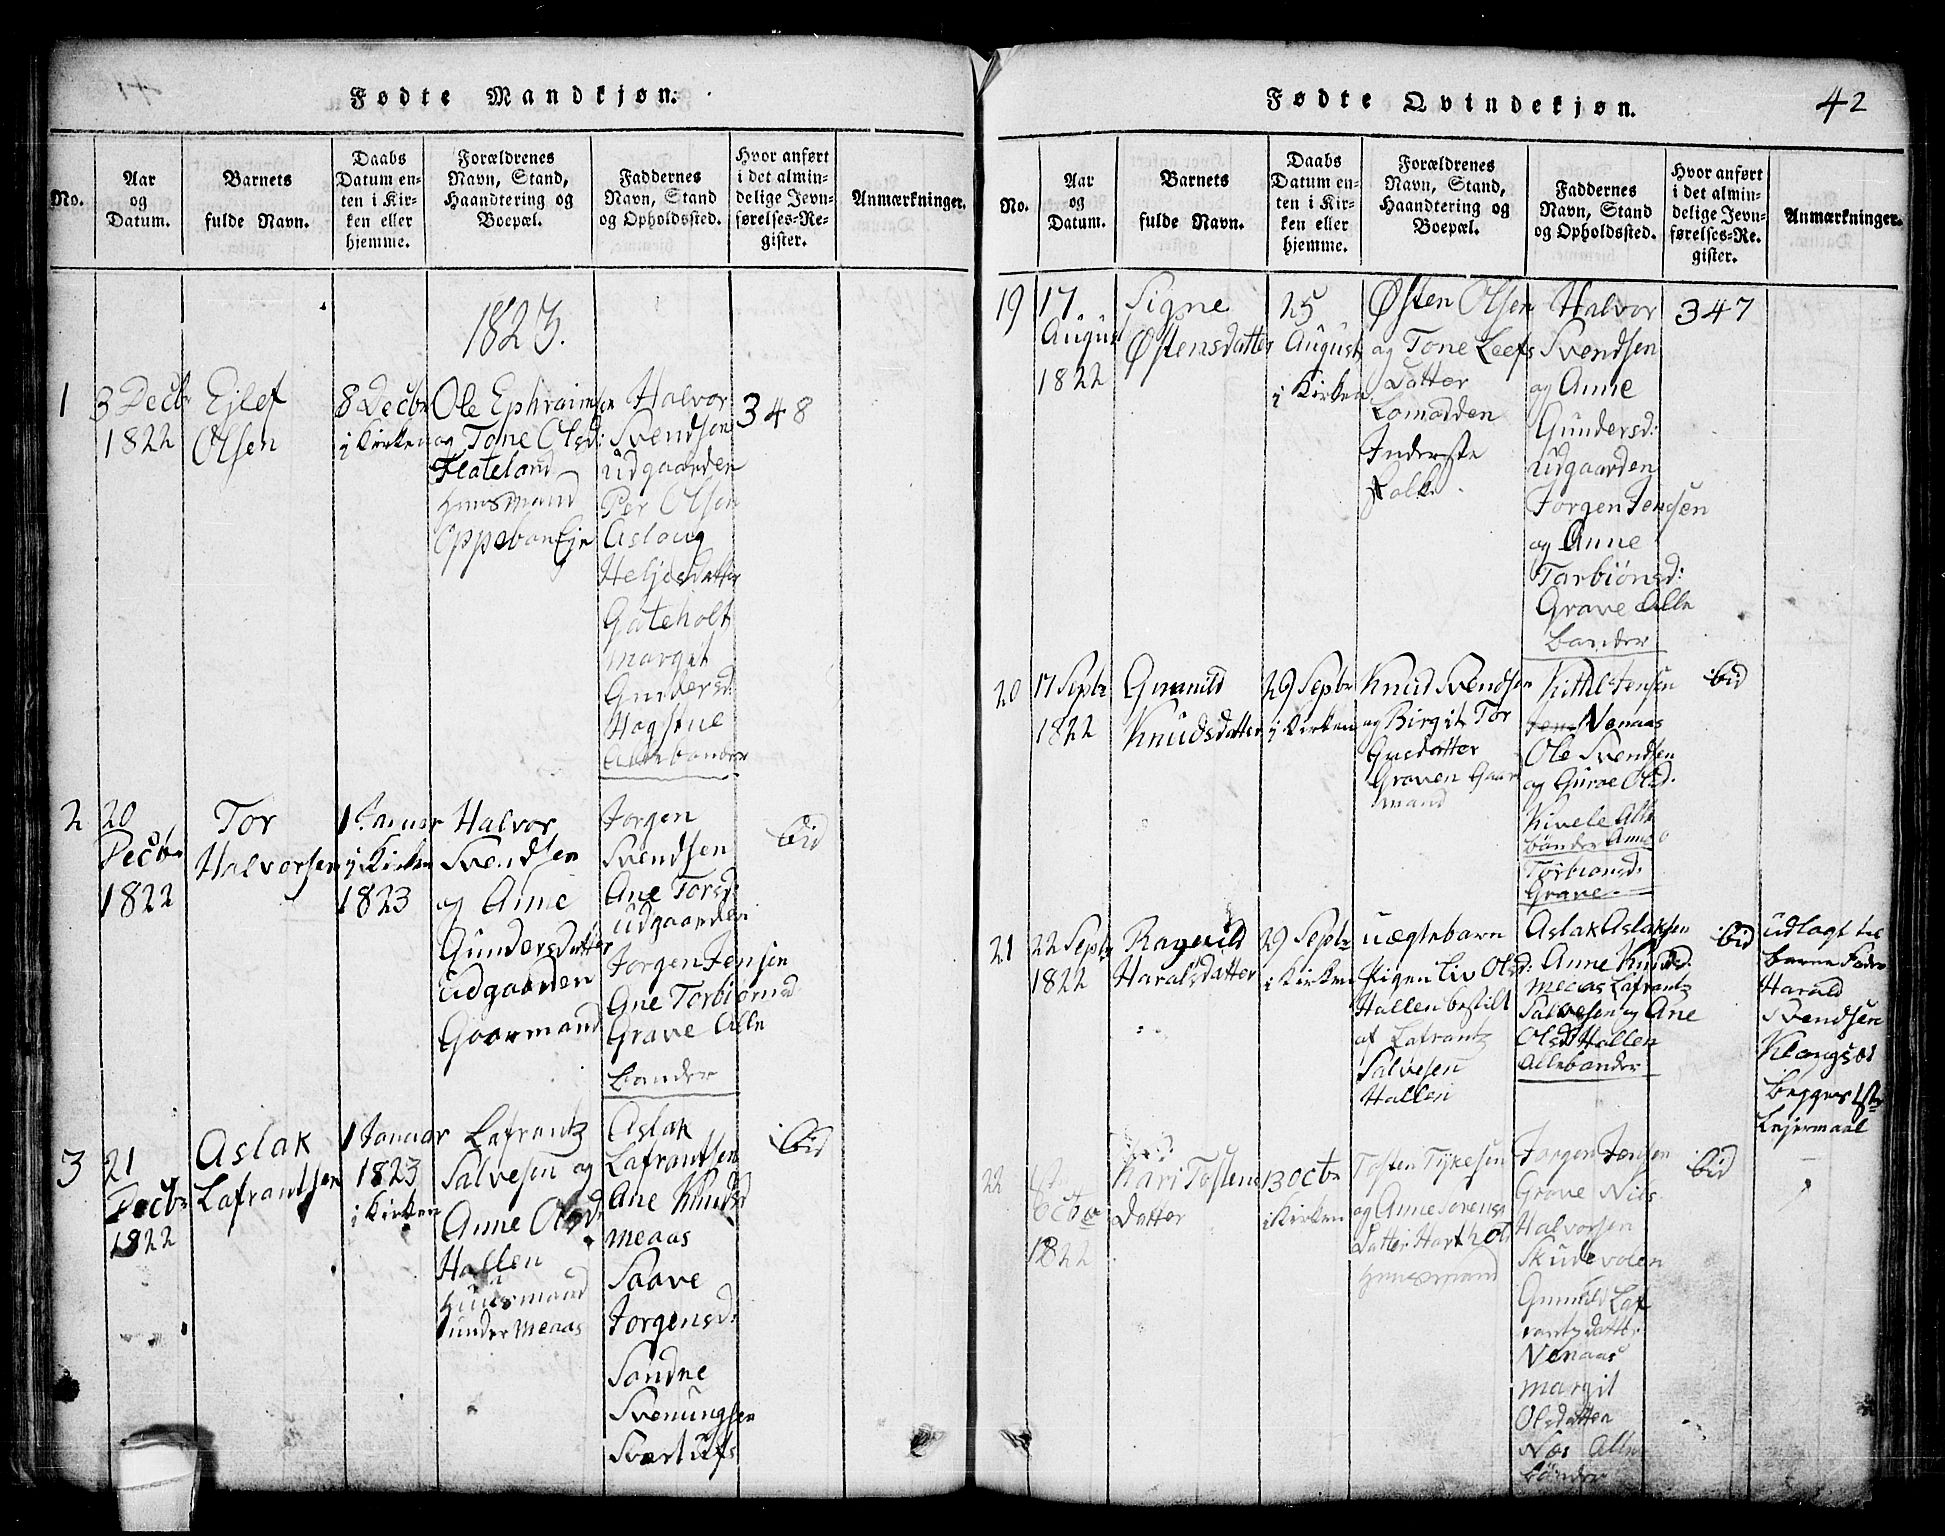 Fødte Mandkjøn.
No.
Aar
og
Datum.
Barnets
fulde Navn.
Daabs
Datum en-
ten i Kir-
ken eller
hjemme.
Forældrenes
Navn, Stand,
Haandtering og
Boepæl.
Faddernes
Navn, Stand
og Opholdssted.
Hvor anført
i det almin-
delige Jevn-
førelses-Re-
gister.
Anmærkninger.
1823.
1
3 Decbr
1822
Ejlef
Olsen
8 Decbr
i Kirken
Ole Ephraimsen
og Tone Olsd:
Flateland
Huusmand
Oppeboen Eje
Halvor
Svendsen
Udgaarden
Per Olsen
Aslaug
Heljesdatter
Gateholt
Margit
Gundersd:
Hogstue
Alle bønder
348
2
20
Decbr
1822
Tor
Halvorsen
1 Januar
i Kirken
1823
Halvor
Svendsen
og Anne
Gundersdatter
Udgaarden
Gaarmand
Jorgen
Svendsen
Ane Torsd:
Udgaarden
Jorgen Jensen
Ane Torbiørnsd
Grave Alle
bønder
ibid
3
21
Decbr
1822
Aslak
Lafrantsen
1 Januar
1823
i Kirken
Lafrantz
Salvesen og
Anne Olsd:
Hallen
Huusmand
under Meaas
Aslak
Lafrantsen
Ane Knudsd
Meaas
Saave
Jorgensd:
Sondne
Svenungsen
Svartufs
ibid
Fødte Qvindekjøn.
42
No.
Aar
og
Datum.
Barnets
fulde Navn.
Daabs
Datum en-
ten i Kir-
ken eller
hjemme.
Forældrenes
Navn, Stand,
Haandtering og
Boepæl.
Faddernes
Navn, Stand
og Opholdssted.
Hvor anført
i det almin-
delige Jevn-
førelses-Re-
gister.
Anmærkninger.
19
17
August
1822
Signe
Østensdatter
25
August
i Kirken
Østen Olsen
og Tone Leefs
Datter
Lomodden
Inderste
Folk.
Halvor
Svendsen
og Anne
Gundersd:
Udgaarden
Jorgen Jensen
og Anne
Tarbiönsd:
Grave Alle
bønder
347
20
17 Septbr
1822
Gunnild
Knudsdatter
29 Septbr
i Kirken
Knud Svendsen
og Birgit Tor
Gusdatter
Graven Gaar
mand
Kittil Jensen
Nenaas
Ole Svendsen
og Gurae Olsd:
Kivele Alle
bønder Anne
Torbionsd:
Grave
ibid
21
22 Septbr
1822
Ragnild
Haralsdatter
29 Septbr
i Kirken
uægtebarn
Pigen Liv Olsd:
Hallen bestilt
af Lafrantz
Salvesen
Hallen
Aslak Aslaksen
Anne Knudsd:
Meaas Lafrantz
Salvesen og Ane
Olsd Hallen
Alle bønder
ibid
udlagt til
barne Fader
Harald
Svendsen
begges 1ste
Lejermaal
22
Octbr
1822
Kari Tostens
Datter
13 Octbr
i Kirken
Tosten Tykesen
og Anne Sorens
Datter Hartholt
Huusmand
Jorgen Jensen
Grave Nils
Halvorsen
Skudevolen
Gunnild Laf
rantzdatter
Nenaas
Margit
Olsdatter
Næs Alle
bønder
ibid